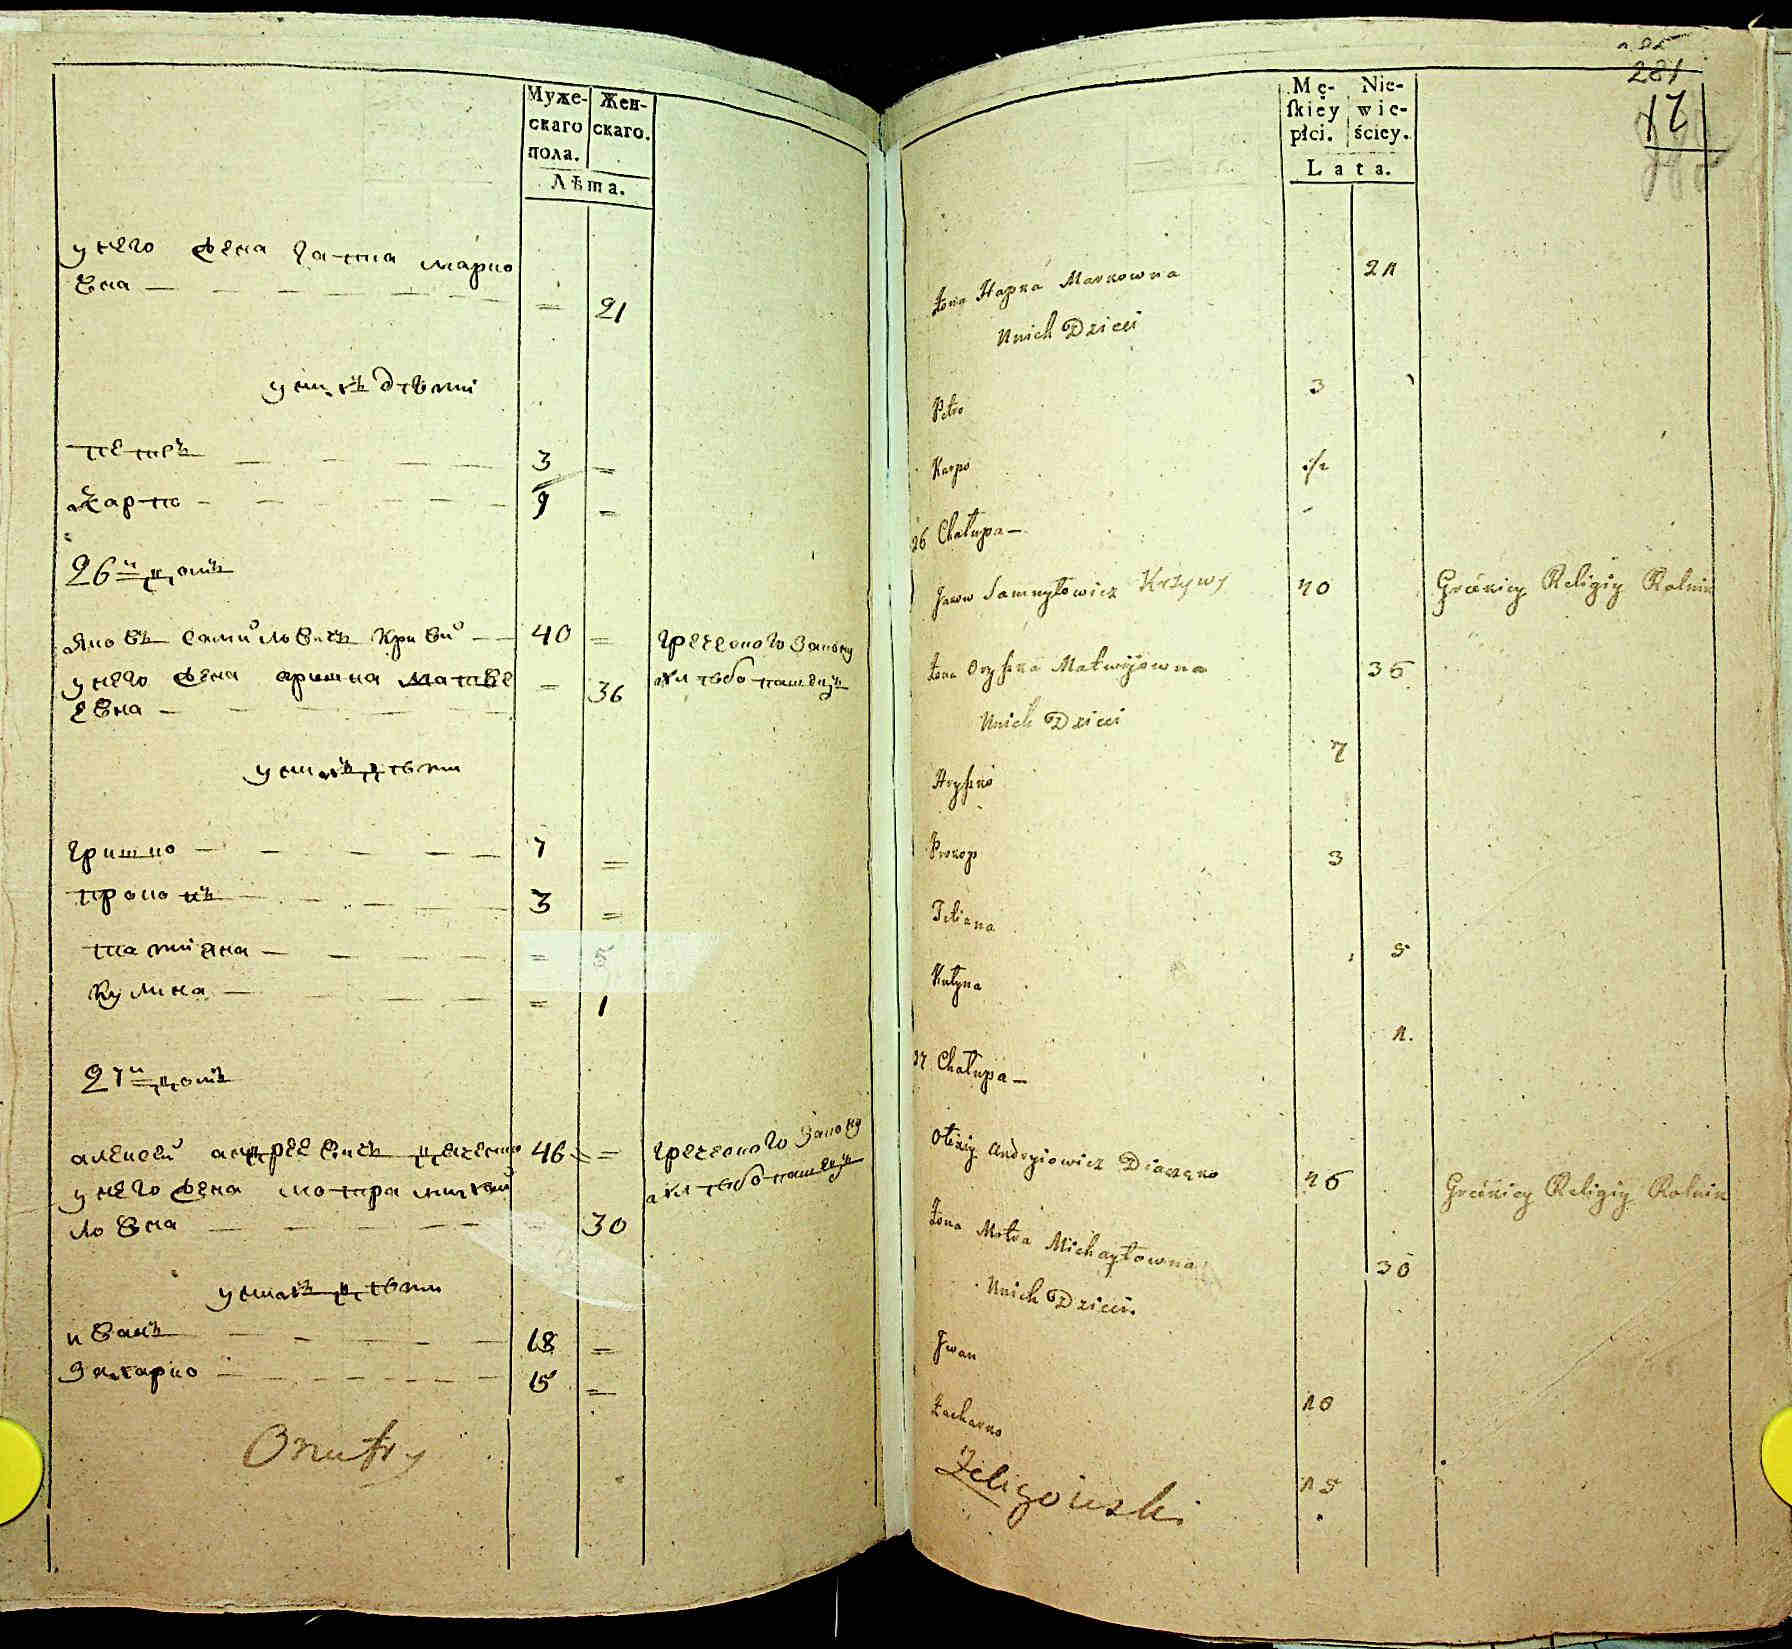 Муже-
скаго
пола.
Жен-
скаго.
Лѣта.
у него жена гапка марко
вна 21
у них дѣти
петръ 3
карпо
26й домъ
яковъ самийловичъ криви 40 греческого закону
у него жена аришка матвее 36 хлѣбопашецъ
евна
у них дѣти
гришко 7
прокопъ 3
татияна 5
кулина 1
27й домъ
алексей андреевичъ 46 греческого закону
у него жена мотра михай хлѣбопашецъ
ловна 30
у них дѣти
иванъ 18
захарко 15
Onufry
281
17
Mę-
ſkiey
płci.
Nie-
wie-
ściey.
Lata.
Żona Hapka Markowna 21
Unich Dzieci
Petro 3
Karpo
26 Chałupa
Jakow Samuyłowicz Krzywy 40 Gréckiey Religiy Rolnik
Żona Oryszka Matwijowna 36
Unich Dzieci
Hryszko 7
Prokop 3
Tetiana 5
Kulyna 1.
27 Chałupa
Olexiy Andryiowicz Diaczęko 46 Gréckiey Religiy Rolnik
Żona Motra Michayłowna 30
Unich Dzieci.
Jwan 18
Zacharko 15
Żeligowski